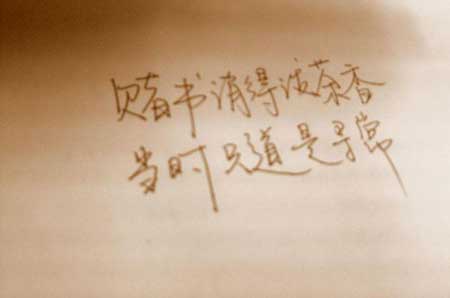 赌书消得泼茶香
当时只道是寻常